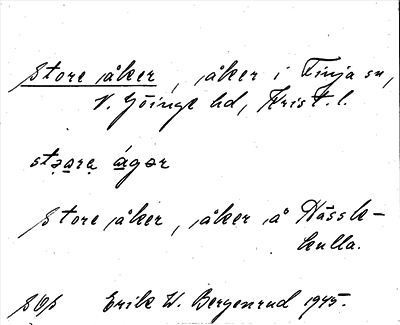 Store åker, åker i Finja sn,
V. Göinge hd, Krist. l.
stǫare ágər
Store åker, åker å Hässle-
kulla.
SOS Erik W. Bergenrud 1945.